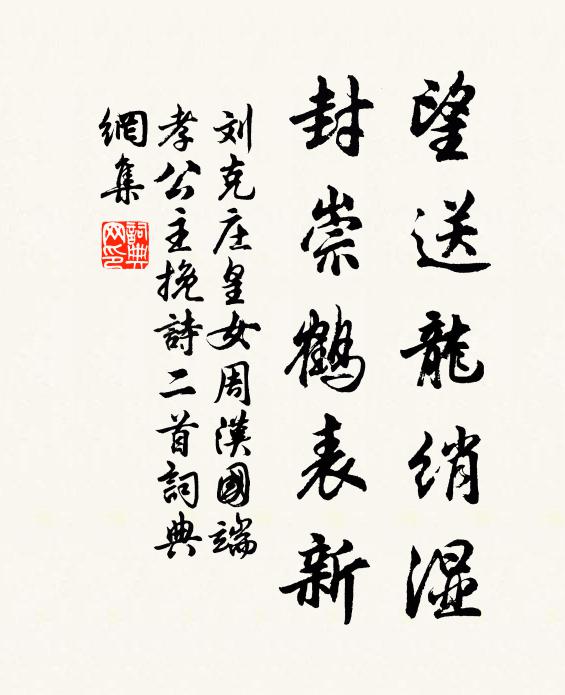 望送龍綃湿
封崇鶴表新
刘克庄皇女周漢國端
孝公主挽詩二首詞典
網集
詞典网印